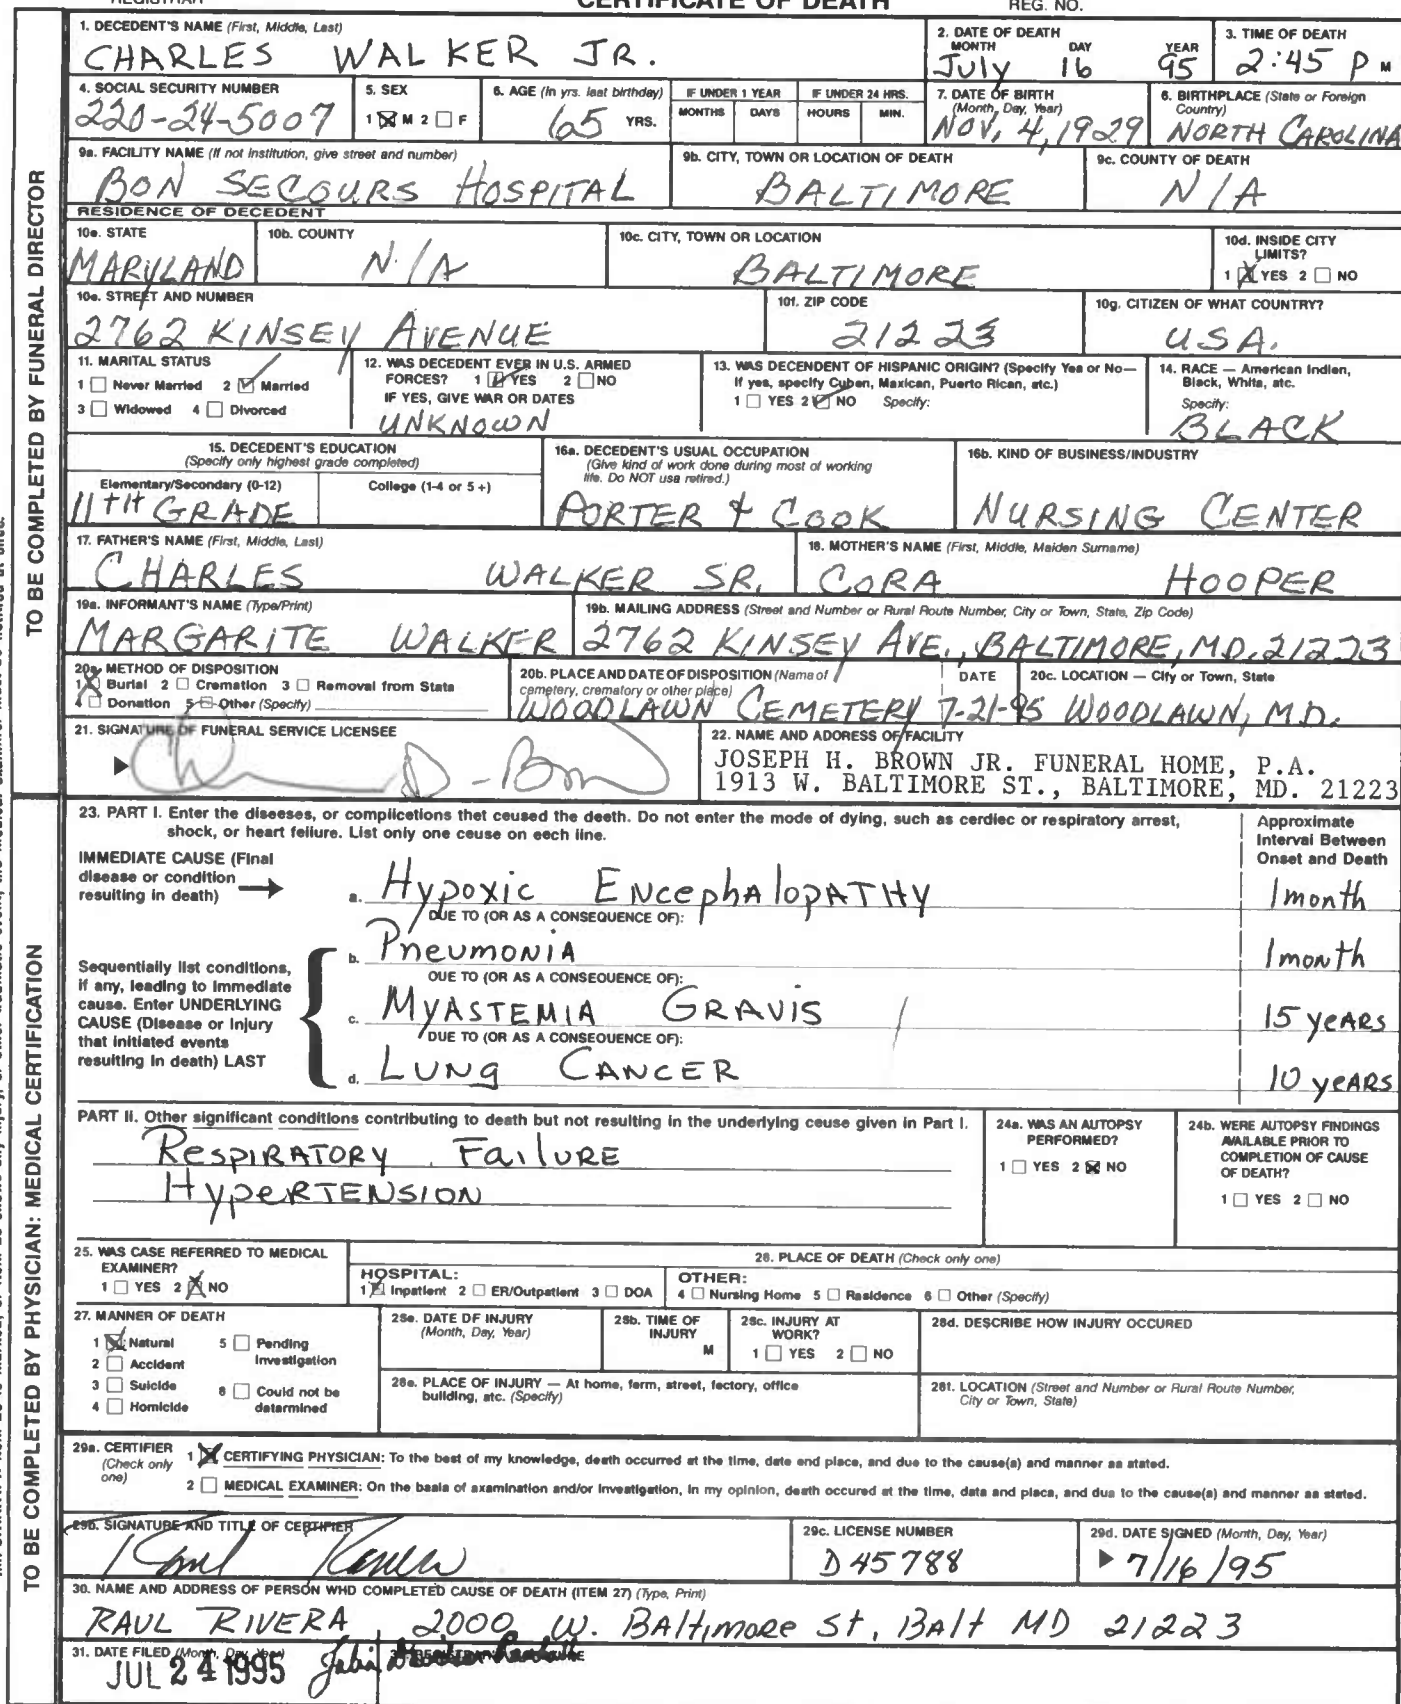 REGISTRAR CERTIFICATE OF DEATH REG. NO.
1. DECEDENT'S NAME (First, Middle, Last)
CHARLES WALKER JR.
2. DATE OF DEATH
MONTH DAY YEAR
July 16 95
3. TIME OF DEATH
2:45 P M
4. SOCIAL SECURITY NUMBER
220-24-5007
5. SEX
1 M 2 F
6. AGE (In yrs. last birthday)
65 YRS.
IF UNDER 1 YEAR
MONTHS DAYS
IF UNDER 24 HRS.
HOURS MIN.
7. DATE OF BIRTH
(Month, Day, Year)
NOV, 4, 1929
6. BIRTHPLACE (State or Foreign
Country)
NORTH CAROLINA
9a. FACILITY NAME (If not institution, give street and number)
BON SECOURS HOSPITAL
9b. CITY, TOWN OR LOCATION OF DEATH
BALTIMORE
9c. COUNTY OF DEATH
N/A
RESIDENCE OF DECEDENT
10a. STATE
MARYLAND
10b. COUNTY
N/A
10c. CITY, TOWN OR LOCATION
BALTIMORE
10d. INSIDE CITY
LIMITS?
1 YES 2 NO
10e. STREET AND NUMBER
2762 KINSEY AVENUE
10f. ZIP CODE
21223
10g. CITIZEN OF WHAT COUNTRY?
USA.
11. MARITAL STATUS
1 Never Married 2 Married
3 Widowed 4 Divorced
12. WAS DECEDENT EVER IN U.S. ARMED
FORCES? 1 YES 2 NO
IF YES, GIVE WAR OR DATES
UNKNOWN
13. WAS DECENDENT OF HISPANIC ORIGIN? (Specify Yes or No—
If yes, specify Cuban, Maxican, Puerto Rican, etc.)
1 YES 2 NO Specify:
14. RACE — American Indien,
Black, White, atc.
Specify:
BLACK
15. DECEDENT'S EDUCATION
(Specify only highest grade completed)
Elementary/Secondary (0-12) College (1-4 or 5 +)
11TH GRADE
16a. DECEDENT'S USUAL OCCUPATION
(Give kind of work done during most of working
life. Do NOT use retired.)
PORTER & COOK
16b. KIND OF BUSINESS/INDUSTRY
NURSING CENTER
17. FATHER'S NAME (First, Middle, Last)
CHARLES WALKER SR.
18. MOTHER'S NAME (First, Middle, Maiden Surname)
CORA HOOPER
19a. INFORMANT'S NAME (Type/Print)
MARGARITE WALKER
19b. MAILING ADDRESS (Street and Number or Rural Route Number, City or Town, State, Zip Code)
2762 KINSEY AVE., BALTIMORE, MD. 21223
20a. METHOD OF DISPOSITION
1 Burial 2 Cremation 3 Removal from Stata
4 Donation 5 Other (Specify)
20b. PLACE AND DATE OF DISPOSITION (Name of
cemetery, crematory or other place)
DATE
WOODLAWN CEMETERY 7-21-95
20c. LOCATION — City or Town, State
WOODLAWN, MD.
21. SIGNATURE OF FUNERAL SERVICE LICENSEE
22. NAME AND ADORESS OF FACILITY
JOSEPH H. BROWN JR. FUNERAL HOME, P.A.
1913 W. BALTIMORE ST., BALTIMORE, MD. 21223
TO BE COMPLETED BY FUNERAL DIRECTOR
23. PART I. Enter the diseeses, or complicetions thet ceused the deeth. Do not enter the mode of dying, such as cerdiec or respiratory arrest,
shock, or heart feilure. List only one ceuse on each line.
Approximate
Interval Between
Onset and Death
IMMEDIATE CAUSE (Final
disease or condition
resulting in death)
a. Hypoxic Encephalopathy 1 month
DUE TO (OR AS A CONSEQUENCE OF):
b. Pneumonia 1 month
OUE TO (OR AS A CONSEQUENCE OF):
c. MYASTEMIA GRAVIS 15 years
DUE TO (OR AS A CONSEQUENCE OF):
d. Lung Cancer 10 years
Sequentially list conditions,
if any, leading to immediate
cause. Enter UNDERLYING
CAUSE (Disease or injury
that initiated events
resulting in death) LAST
PART II. Other significant conditions contributing to death but not resulting in the underlying ceuse given in Part I.
Respiratory Failure
Hypertension
24a. WAS AN AUTOPSY
PERFORMED?
1 YES 2 NO
24b. WERE AUTOPSY FINDINGS
AVAILABLE PRIOR TO
COMPLETION OF CAUSE
OF DEATH?
1 YES 2 NO
25. WAS CASE REFERRED TO MEDICAL
EXAMINER?
1 YES 2 NO
28. PLACE OF DEATH (Check only one)
HOSPITAL:
1 Inpatient 2 ER/Outpatient 3 DOA
OTHER:
4 Nursing Home 5 Rasidence 6 Other (Specify)
27. MANNER OF DEATH
1 Natural 5 Pending
Investigation
2 Accident
3 Suicide 8 Could not be
datarmined
4 Homicide
28a. DATE DF INJURY
(Month, Day, Year)
28b. TIME OF
INJURY
M
28c. INJURY AT
WORK?
1 YES 2 NO
28d. DESCRIBE HOW INJURY OCCURED
28e. PLACE OF INJURY — At home, ferm, street, fectory, office
building, atc. (Specify)
28f. LOCATION (Street and Number or Rural Route Number,
City or Town, State)
29a. CERTIFIER
(Check only
one)
1 CERTIFYING PHYSICIAN: To the best of my knowledge, death occurred at the time, date end place, and due to the cause(a) and manner aa stated.
2 MEDICAL EXAMINER: On the basla of axamination and/or Investigation, in my opinion, death occured at the time, data and placa, and dua to the cause(a) and manner aa stated.
29b. SIGNATURE AND TITLE OF CERTIFIER
29c. LICENSE NUMBER
D45788
29d. DATE SIGNED (Month, Day, Year)
7/16/95
30. NAME AND ADDRESS OF PERSON WHD COMPLETED CAUSE OF DEATH (ITEM 27) (Type, Print)
RAUL RIVERA 2000 W. Baltimore St, Balt MD 21223
31. DATE FILED (Month, Day, Year)
JUL 24 1995
TO BE COMPLETED BY PHYSICIAN: MEDICAL CERTIFICATION